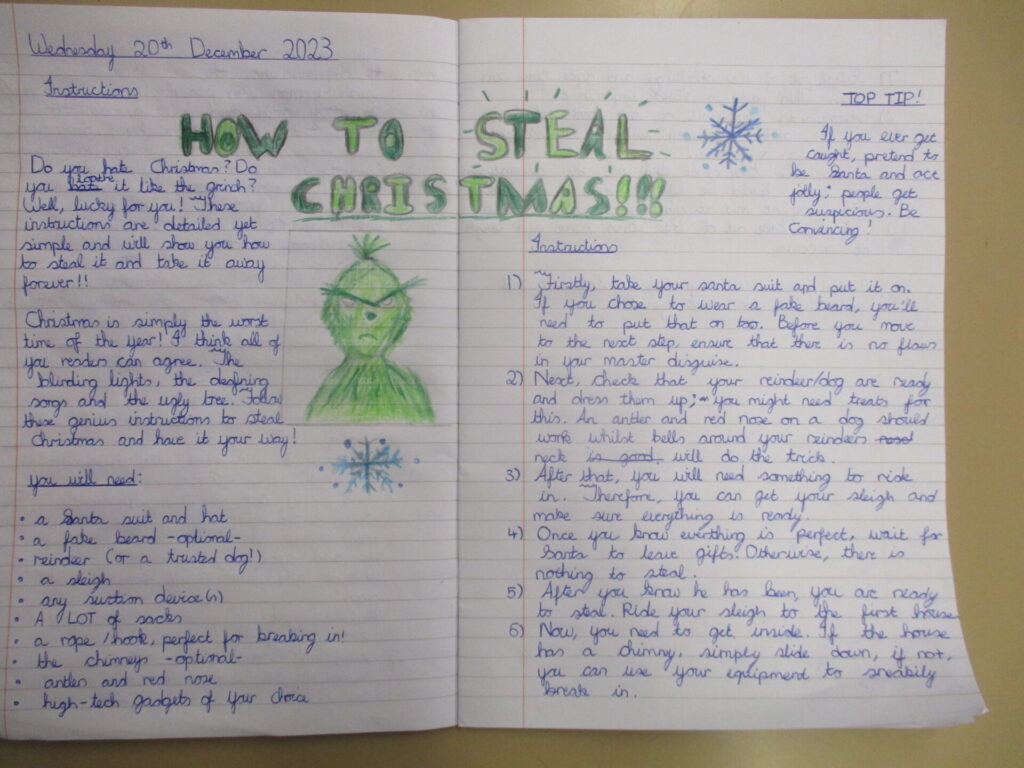 Wednesday 20th December 2023
Instructions
HOW TO STEAL
CHRISTMAS!!!
Do you hate Christmas? Do
you loathe it like the grinch?
Well, lucky for you! These
instructions are detailed yet
simple and will show you how
to steal it and take it away
forever!!
Christmas is simply the worst
time of the year! I think all of
you readers can agree. The
blinding lights, the deafning
songs and the ugly tree. Follow
these genius instructions to steal
Christmas and have it your way!
you will need:
• a Santa suit and hat
• a fake beard -optional-
• reindeer (or a trusted dog!)
• a sleigh
• any suction device(s)
• A LOT of sacks
• a rope / hook, perfect for breaking in!
• the chimneys -optional-
• antlers and red nose
• high-tech gadgets of your choice
TOP TIP!
If you ever get
caught, pretend to
be Santa and act
jolly; people get
suspicious. Be
Convincing!
Instructions
1) Firstly, take your santa suit and put it on.
If you chose to wear a fake beard, you'll
need to put that on too. Before you move
to the next step, ensure that there is no flaws
in your master disguise.
2) Next, check that your reindeer/dog are ready
and dress them up; you might need treats for
this. An antler and red nose on a dog should
work whilst bells around your reindeers
neck is good will do the trick.
3) After that, you will need something to ride
in. Therefore, you can get your sleigh and
make sure everything is ready.
4) Once you know everthing is perfect, wait for
Santa to leave gifts. Otherwise, there is
nothing to steal.
5) After you know he has been, you are ready
to steal. Ride your sleigh to the first house
6) Now, you need to get inside. If the house
has a chimny, simply slide down, if not,
you can use your equipment to sneakily
break in.